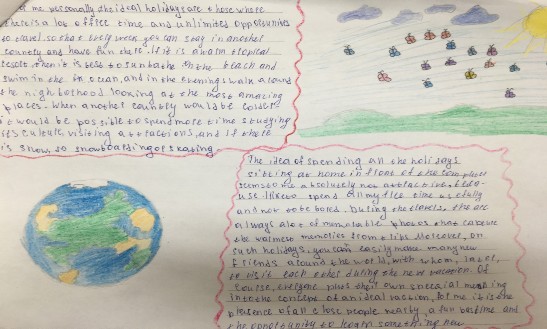 me personally, the ideal holidays are those where
there is a lot of free time and unlimited opportunities
to travel, so that every week you can stay in another
country and have fun there. If it is a warm tropical
resort, then it is best to sunbathe on the beach and
swim in the ocean, and in the evenings walk around
the nighborhood looking at the most amazing
places. When another country would be colder
it would be possible to spend more time studying
its culture, visiting attractions, and if there
is snow, so snowboarding or skating.
The idea of spending all the holidays
sitting at home in front of the computer
seems to me absolutely not attractive, beca-
use I like to spend all my free time usefully
and not to be bored. During the travels, there are
always a lot of memorable photos that capture
the warmest memories from trips. Moreover, on
such holidays, you can easily make many new
friends around the world, with whom, later,
to visit each other during the next vacation. Of
course, everyone puts their own special meaning
into the concept of an ideal vacation, for me it is the
presence of all close people nearby, a fun pastime and
the opportunity to learn something new